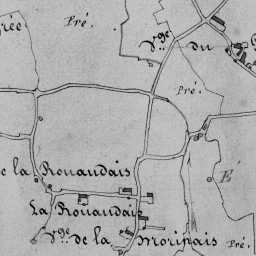 Pré.
V.ge du
Pré.
de la Rouaudais
É
La Rouaudais
V.ge de la Moripais
Pré.